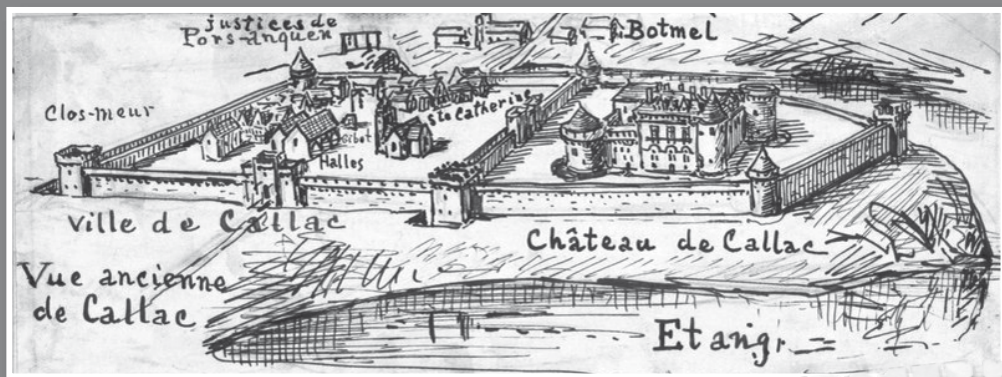 justices de
Pors-anquen
Botmel
Clos-meur
Ste Catherine
Gibet
Halles
Ville de Callac
Château de Callac
Vue ancienne
de Callac
Etang.